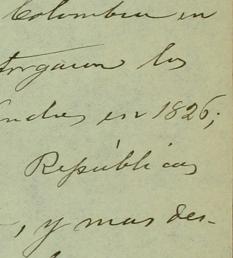 Colombia en
torgaron los
ondres en 1826;
Repúblicas
, y mas des-